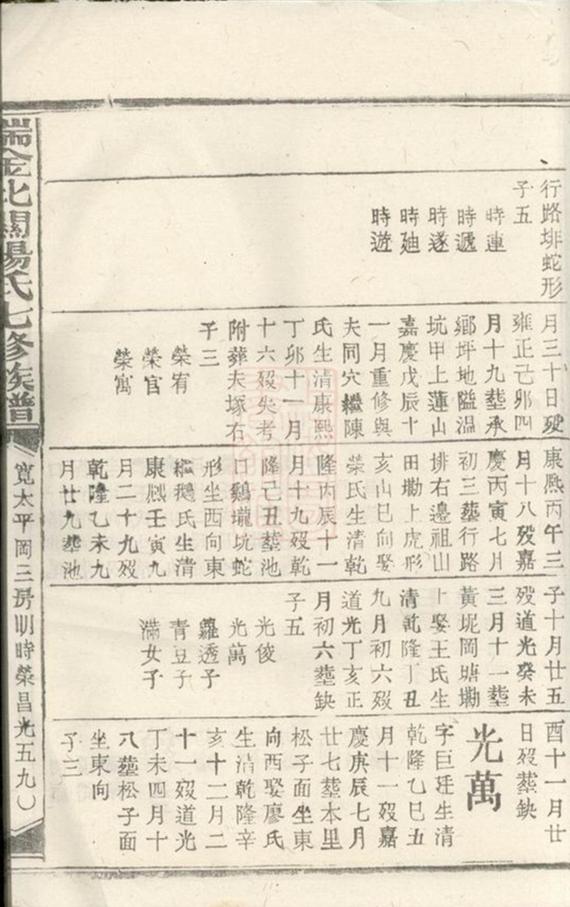 瑞金北關楊氏七修族譜
寬太平岡三房明時榮昌光五九
行路排蛇形
子五
時連
時遞
時遂
時迪
時遊
月三十日歿
雍正己卯四
月十九塟承
鄉坪地隘温
坑甲上蓮山
嘉慶戊辰十
一月重修與
夫同穴繼陳
氏生清康熙
丁卯十一月
十六歿失考
附葬夫塚右
子三
榮宥
榮官
榮寓
康熙丙午三
月十八歿嘉
慶丙寅七月
初三塟行路
排右邊祖山
田墈上虎形
亥山巳向娶
榮氏生清乾
隆丙辰十一
月十九歿乾
隆己丑塟池
口鷄壠坑蛇
形坐西向東
繼鵝氏生清
康熙壬寅九
月二十九歿
乾隆乙未九
月廿九塟池
子十月廿五
歿道光癸未
三月十一塟
黃坭岡塘墈
上娶王氏生
清乾隆丁丑
九月初六歿
道光丁亥正
月初六塟缺
子五
光俊
光萬
羅透子
青豆子
滿女子
酉十一月廿
日歿塟缺
光萬
字巨珄生清
乾隆乙巳五
月十一歿嘉
慶庚辰七月
廿七塟本里
松子面坐東
向西娶廖氏
生清乾隆辛
亥十二月二
十一歿道光
丁未四月十
八塟松子面
坐東向
子三